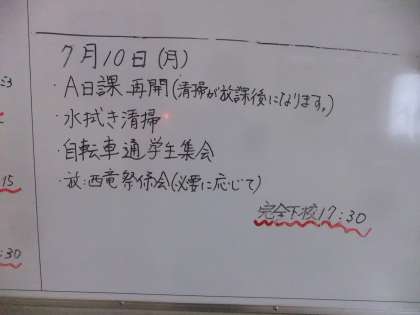 7月10日(月)
・A日課 再開(清掃が放課後になります。)
・水拭き清掃
・自転車通学生集会
・放:西竜祭係会(必要に応じて)
完全下校17:30
15
:30